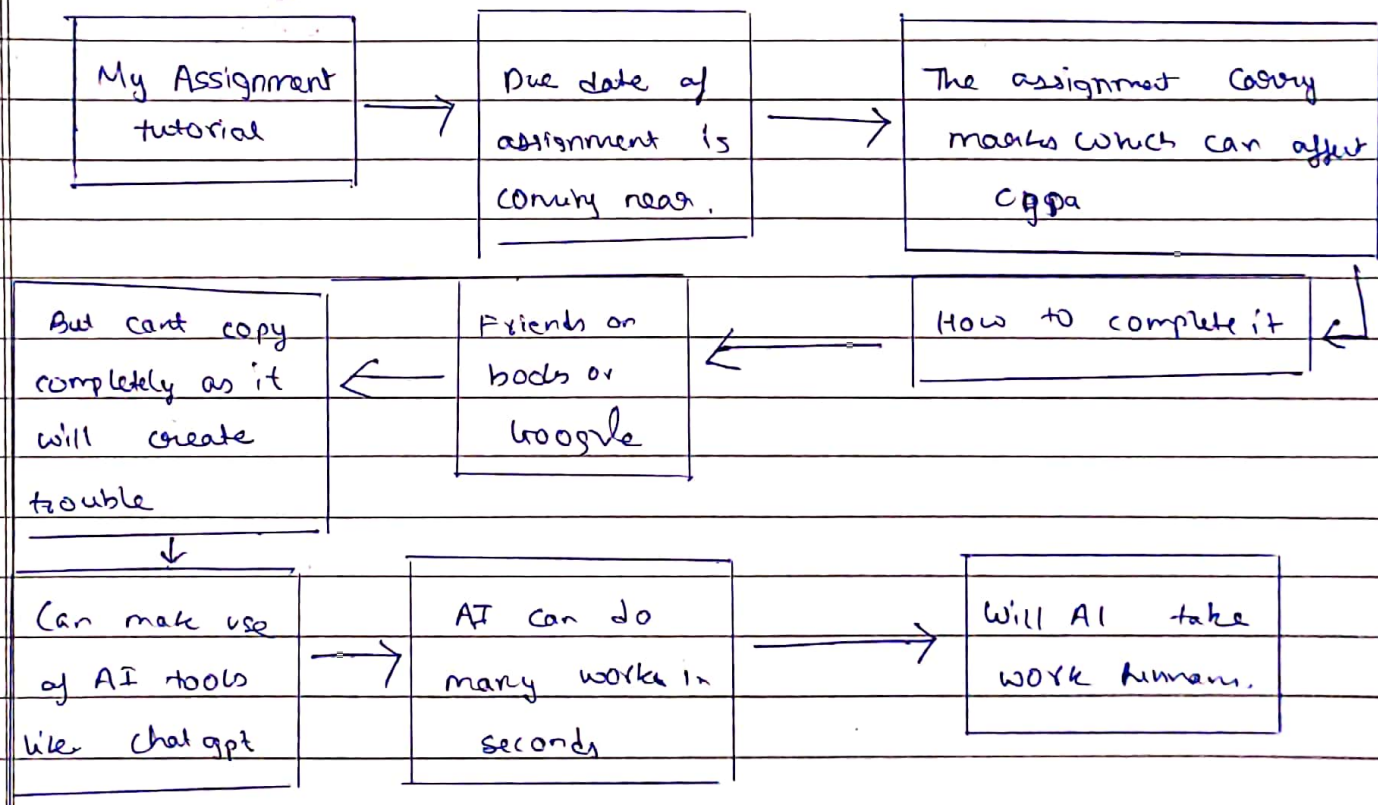 My Assignment
tutorial
Due date of
assignment is
coming near.
The assignmet carry
marks which can affect
cgpa
How to complete it
Friends or
books or
Google
But cant copy
completely as it
will create
trouble
Can make use
of AI tools
like chatgpt
AI can do
many works in
seconds
Will AI take
work humans.